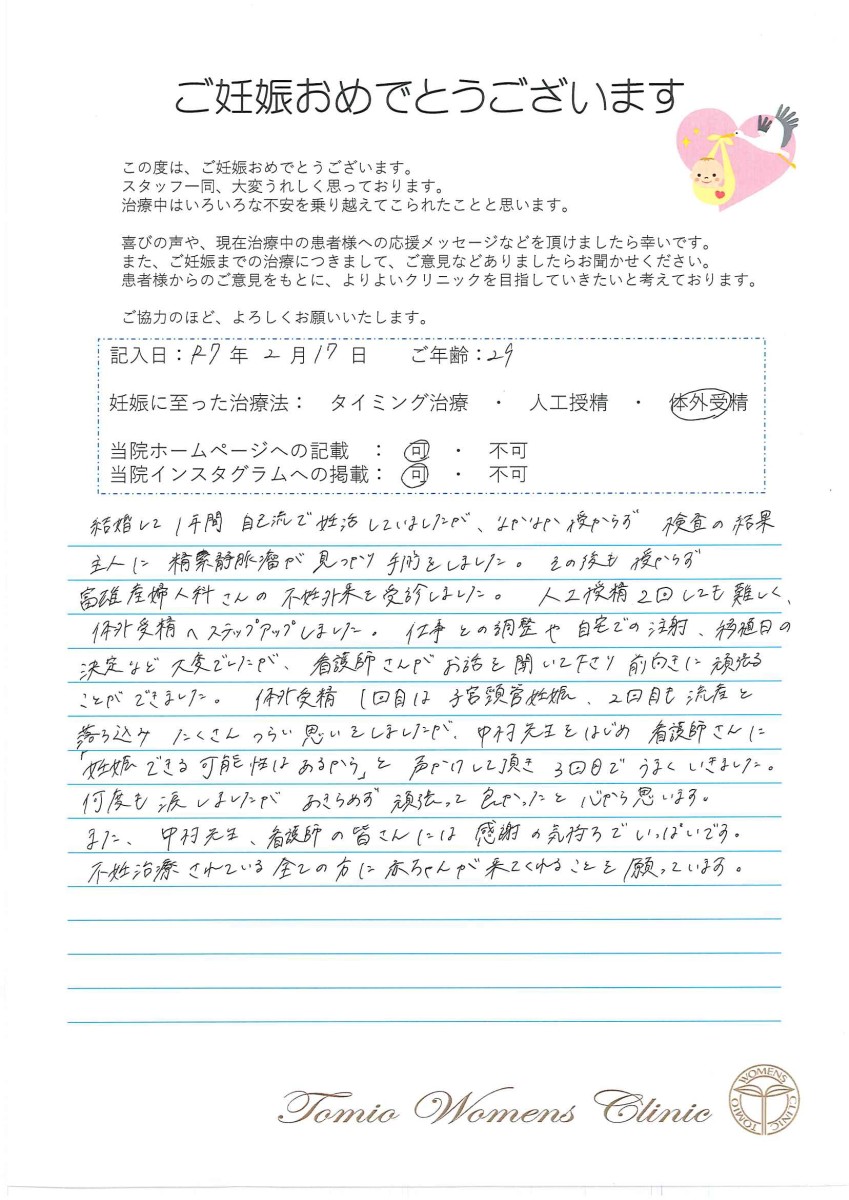 ご妊娠おめでとうございます
この度は、ご妊娠おめでとうございます。
スタッフ一同、大変うれしく思っております。
治療中はいろいろな不安を乗り越えてこられたことと思います。
喜びの声や、現在治療中の患者様への応援メッセージなどを頂けましたら幸いです。
また、ご妊娠までの治療につきまして、ご意見などありましたらお聞かせください。
患者様からのご意見をもとに、よりよいクリニックを目指していきたいと考えております。
ご協力のほど、よろしくお願いいたします。
記入日：R7 年 2 月 17 日 ご年齢：29
妊娠に至った治療法： タイミング治療 ・ 人工授精 ・ 体外受精
当院ホームページへの記載 ： 可 ・ 不可
当院インスタグラムへの掲載： 可 ・ 不可
結婚して 1年間 自己流で妊活していましたが、なかなか授からず 検査の結果
主人に 精索静脈瘤が 見つかり 手術をしました。 その後も 授からず
富雄産婦人科さんの 不妊外来を受診しました。 人工授精 2回しても難しく、
体外受精へステップアップしました。 仕事との調整や 自宅での注射、移植日の
決定など 大変でしたが、 看護師さんが お話を聞いて下さり 前向きに 頑張る
ことができました。 体外受精 1回目は 子宮頸管妊娠、 2回目も 流産と
落ち込み たくさん つらい思いをしましたが、中村先生をはじめ 看護師さんに
「妊娠できる可能性はあるから」と 声かけして頂き 3回目で うまくいきました。
何度も 涙しましたが あきらめず 頑張って 良かったと 心から思います。
また、 中村先生、看護師の皆さんには 感謝の気持ちでいっぱいです。
不妊治療されている 全ての方に 赤ちゃんが 来てくれることを 願っています。
Tomio Womens Clinic
WOMENS CLINIC TOMIO